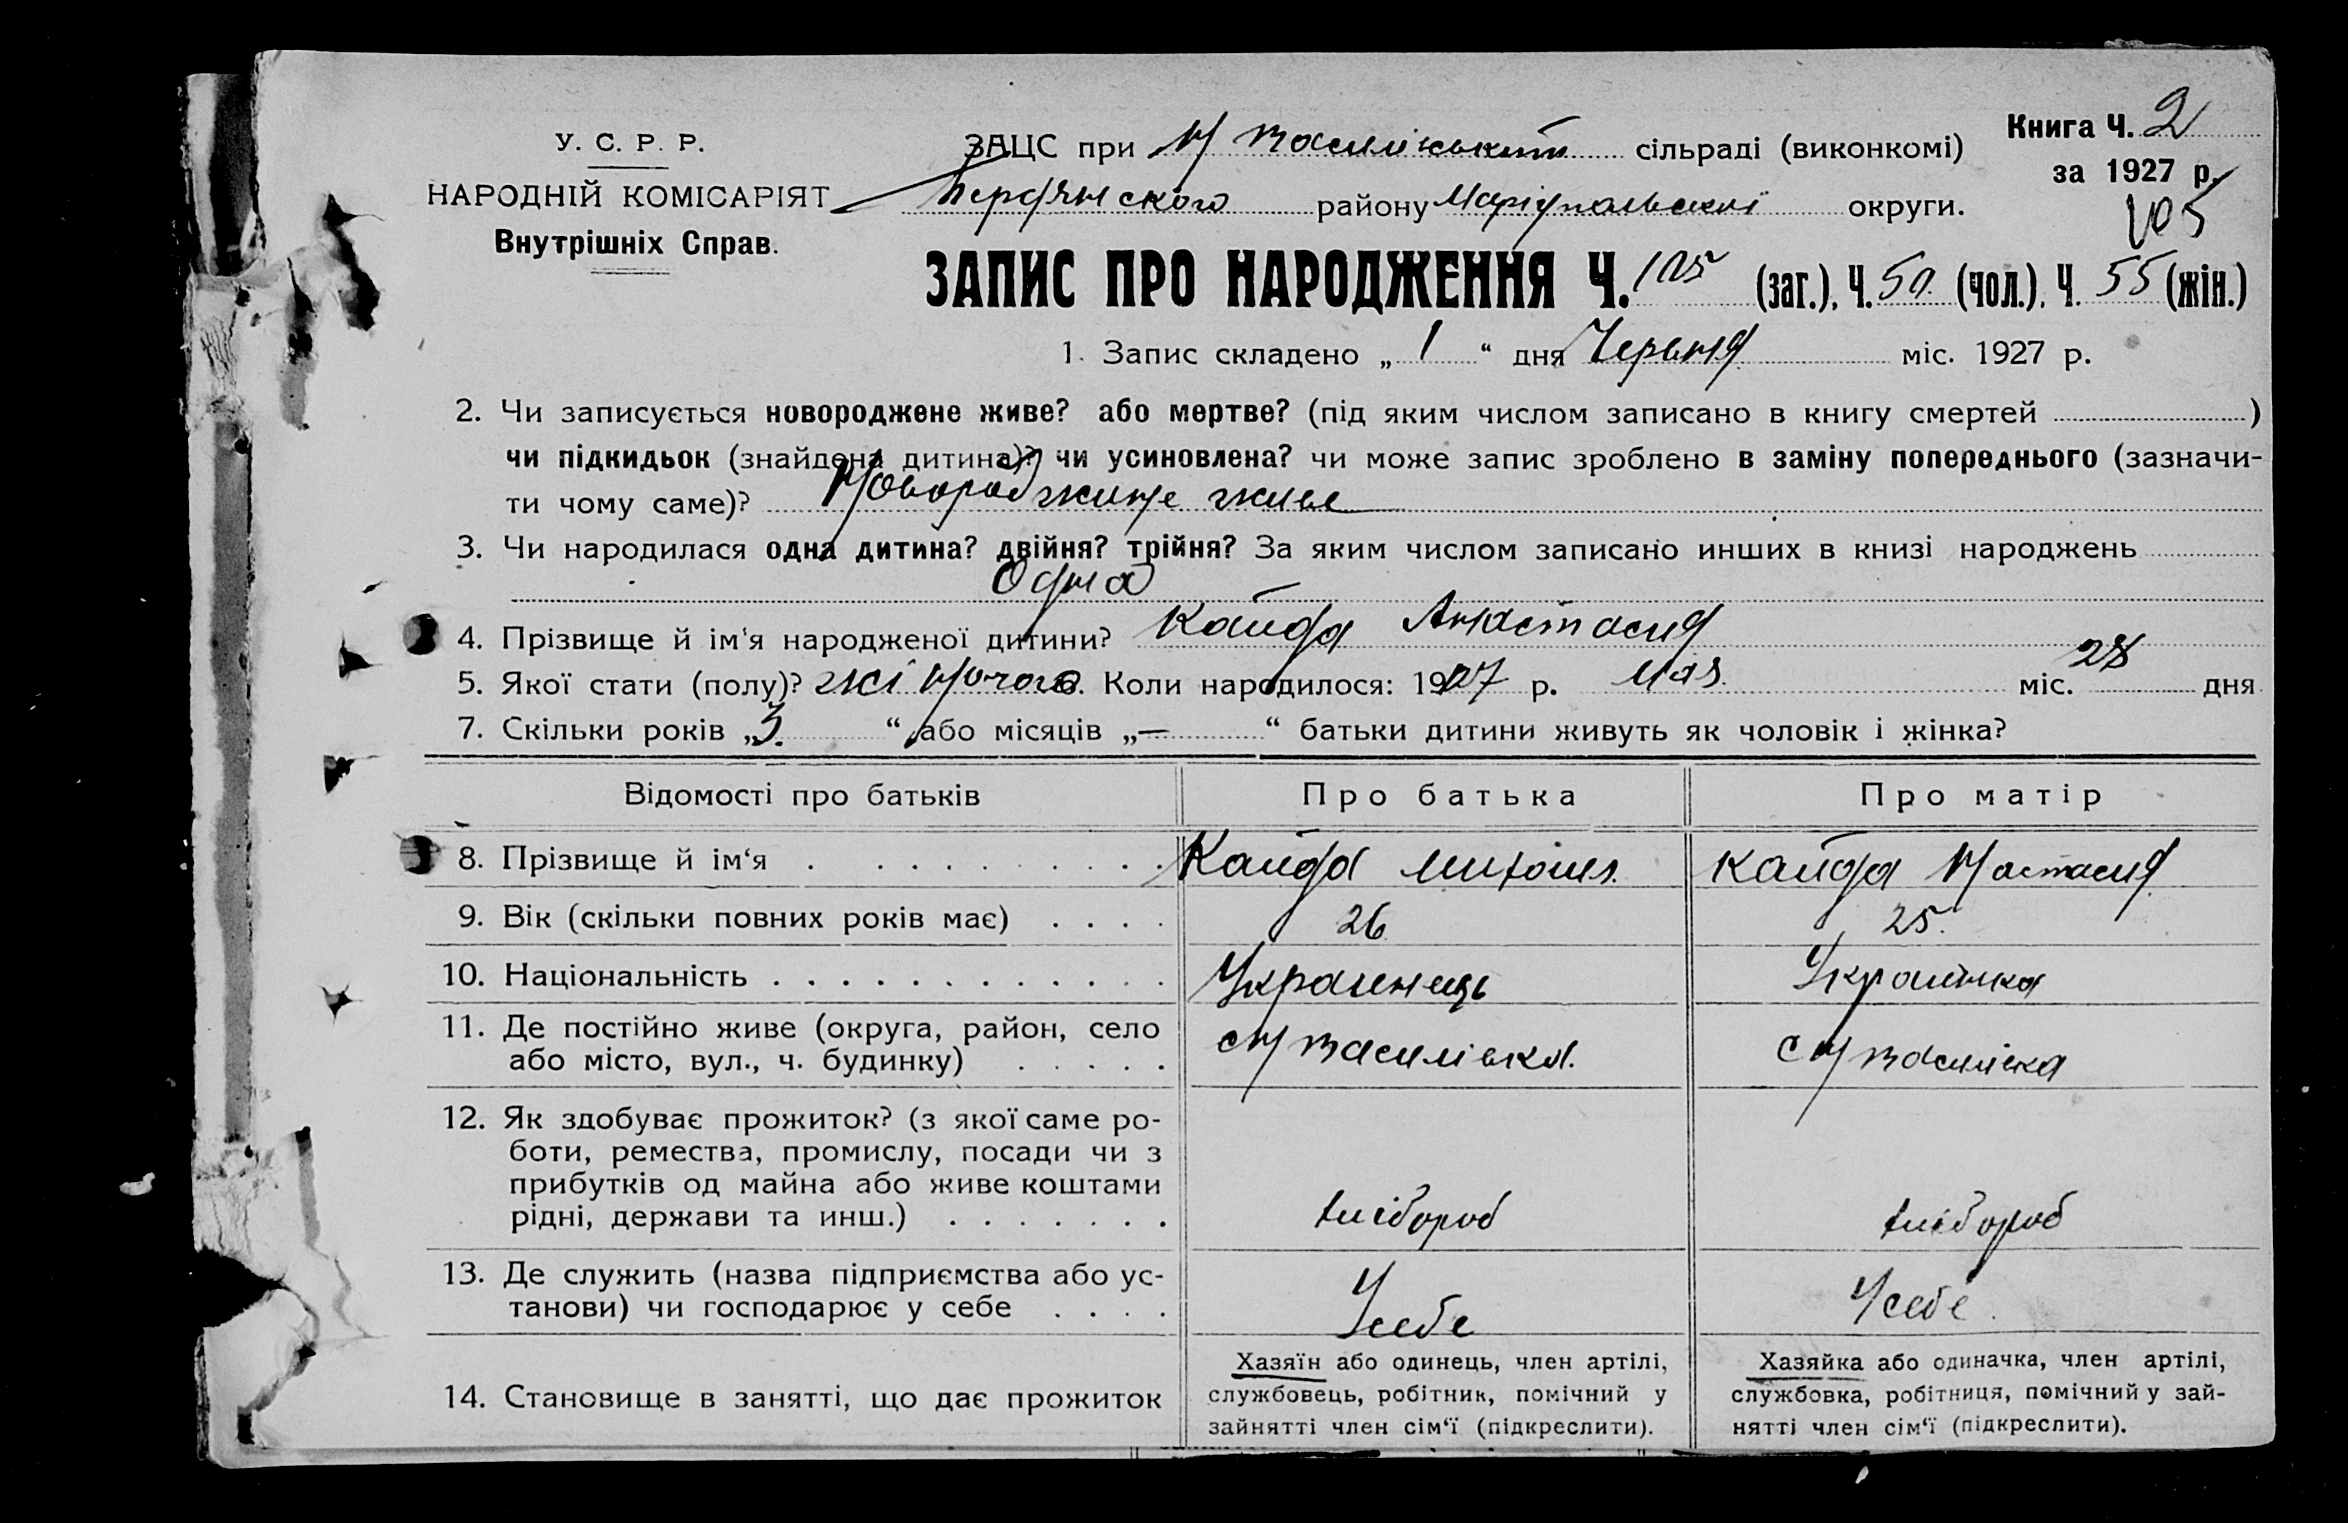 У. С. Р. Р.
НАРОДНІЙ КОМІСАРІЯТ
Внутрішніх Справ.
ЗАЦС при Н Василівській сільраді (виконкомі)
Бердянского району Маріупольскої округи.
Книга Ч. 2
за 1927 р.
105
ЗАПИС ПРО НАРОДЖЕННЯ Ч. 105 (заг.), Ч. 50 (чол.), Ч. 55 (жін.)
1. Запис складено „ 1 “ дня Червня міс. 1927 р.
2. Чи записується новороджене живе? або мертве? (під яким числом записано в книгу смертей )
чи підкидьок (знайдена дитина)? чи усиновлена? чи може запис зроблено в заміну попереднього (зазначи-
ти чому саме)? Новороджине живе
3. Чи народилася одна дитина? двійня? трійня? За яким числом записано инших в книзі народжень
Одна
4. Прізвище й ім'я народженої дитини? Кайда Анастасия
5. Якої стати (полу)? жіночого 6. Коли народилося: 1927 р. Мая міс. 28 дня
7. Скільки років „ 3. “ або місяців „ — “ батьки дитини живуть як чоловік і жінка?
Відомості про батьків Про батька Про матір
8. Прізвище й ім'я . . . . . . . . . Кайда Кайда Настасия
9. Вік (скільки повних років має) . . . . 26 25.
10. Національність . . . . . . . . . . . . . Українець Українка
11. Де постійно живе (округа, район, село
або місто, вул., ч. будинку) . . . . . с Н Василівка. с Н Василівка
12. Як здобуває прожиток? (з якої саме ро-
боти, ремества, промислу, посади чи з
прибутків од майна або живе коштами
рідні, держави та инш.) . . . . . . . хлібороб хлібороб
13. Де служить (назва підприємства або ус-
танови) чи господарює у себе . . . . У себе У себе.
14. Становище в занятті, що дає прожиток
Хазяїн або одинець, член артілі,
службовець, робітник, помічний у
зайнятті член сім'ї (підкреслити).
Хазяйка або одиначка, член артілі,
службовка, робітниця, помічний у зай-
нятті член сім'ї (підкреслити).